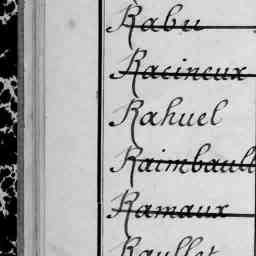 Rabu
Racineux
Rahuel
Raimbault
Ramaux
Raullet